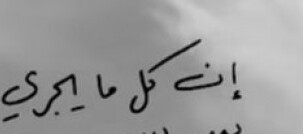 إن كل ما يجري